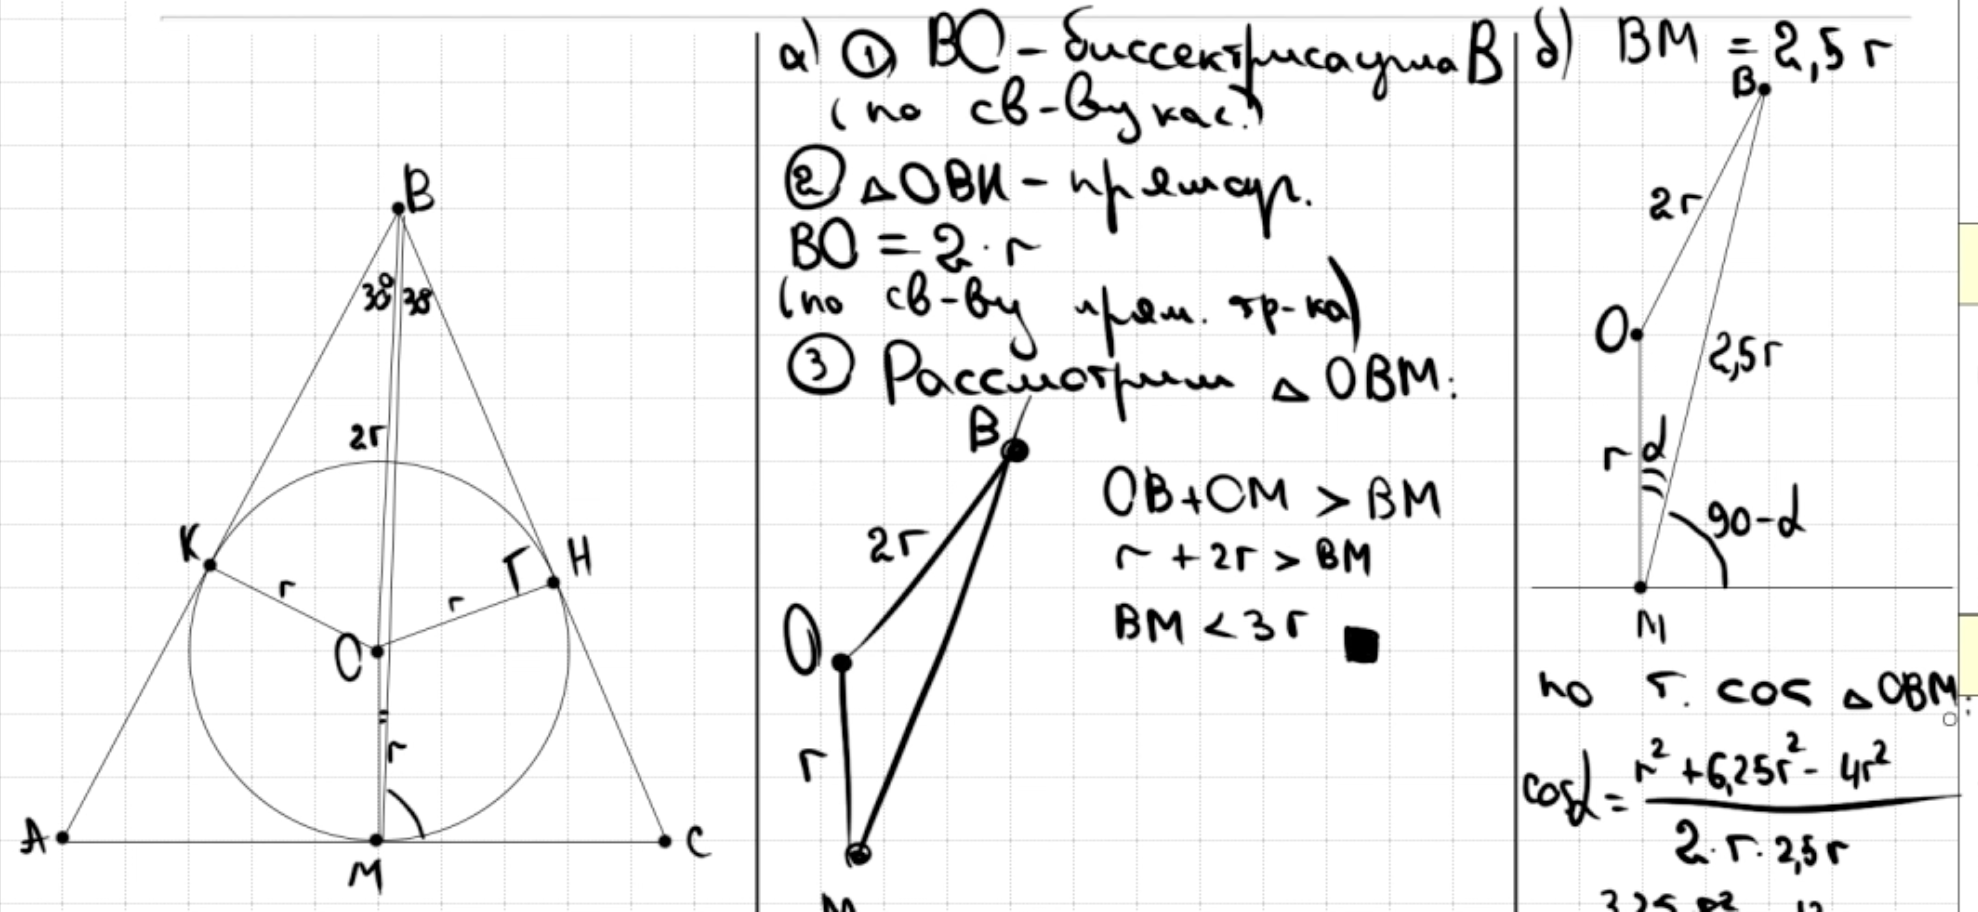 B
30° 30
2r
K
H
r
r
O
r
A
M
C
а) ① BO - биссектриса угла B
(по св-ву кас.)
② △OBK - прямоуг.
BO = 2·r
(по св-ву прям. тр-ка)
③ Рассмотрим △OBM:
B
2r
O
r
M
OB+OM > BM
r + 2r > BM
BM < 3r
б) BM = 2,5r
B
2r
O
2,5r
r
α
90-α
M
по т. cos △OBM:
cosα = r² + 6,25r² - 4r²
2·r·2,5r